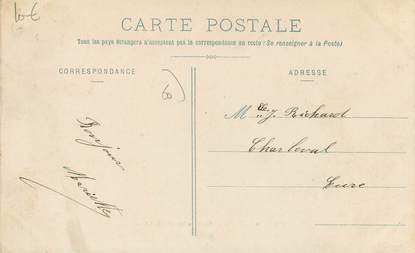 10€
CARTE POSTALE
Tous les pays étrangers n'acceptent pas la correspondance au recto (Se renseigner à la Poste)
CORRESPONDANCE
Bonjour
ADRESSE
M J. Richard
Charleval
Eure